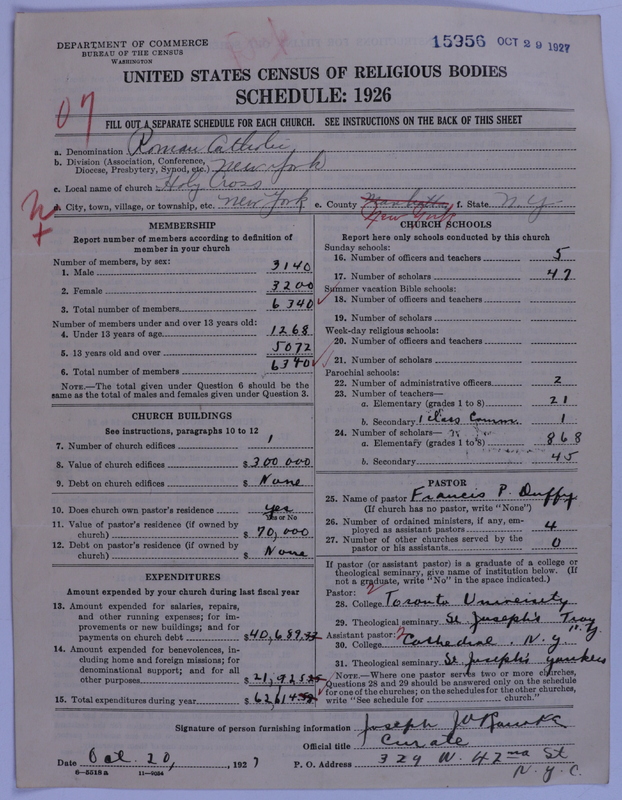 DEPARTMENT OF COMMERCE
BUREAU OF THE CENSUS
WASHINGTON
15956 OCT 29 1927
UNITED STATES CENSUS OF RELIGIOUS BODIES
SCHEDULE: 1926
07
FILL OUT A SEPARATE SCHEDULE FOR EACH CHURCH. SEE INSTRUCTIONS ON THE BACK OF THIS SHEET
a. Denomination Roman Catholic
b. Division (Association, Conference, Diocese, Presbytery, Synod, etc.) New York
c. Local name of church Holy Cross
d. City, town, village, or township, etc. New York e. County New York f. State N.Y.
MEMBERSHIP
Report number of members according to definition of
member in your church
Number of members, by sex:
1. Male 3140
2. Female 3200
3. Total number of members 6340
Number of members under and over 13 years old:
4. Under 13 years of age 1268
5. 13 years old and over 5072
6. Total number of members 6340
NOTE.—The total given under Question 6 should be the
same as the total of males and females given under Question 3.
CHURCH BUILDINGS
See instructions, paragraphs 10 to 12
7. Number of church edifices 1
8. Value of church edifices $300 000
9. Debt on church edifices $ None
10. Does church own pastor's residence yes
Yes or No
11. Value of pastor's residence (if owned by
church) $ 70,000
12. Debt on pastor's residence (if owned by
church) $ None
EXPENDITURES
Amount expended by your church during last fiscal year
13. Amount expended for salaries, repairs,
and other running expenses; for im-
provements or new buildings; and for
payments on church debt $40,689
14. Amount expended for benevolences, in-
cluding home and foreign missions; for
denominational support; and for all
other purposes $21,925
15. Total expenditures during year $62,614
CHURCH SCHOOLS
Report here only schools conducted by this church
Sunday schools:
16. Number of officers and teachers 5
17. Number of scholars 47
Summer vacation Bible schools:
18. Number of officers and teachers
19. Number of scholars
Week-day religious schools:
20. Number of officers and teachers
21. Number of scholars
Parochial schools:
22. Number of administrative officers 2
23. Number of teachers—
a. Elementary (grades 1 to 8) 21
b. Secondary 1 Class Comm. 1
24. Number of scholars—
a. Elementary (grades 1 to 8) 868
b. Secondary 45
PASTOR
25. Name of pastor Francis P. Duffy
(If church has no pastor, write "None")
26. Number of ordained ministers, if any, em-
ployed as assistant pastors 4
27. Number of other churches served by the
pastor or his assistants 0
If pastor (or assistant pastor) is a graduate of a college or
theological seminary, give name of institution below. (If
not a graduate, write "No" in the space indicated.)
Pastor: 2
28. College Toronto University
29. Theological seminary St. Joseph's Troy N.Y.
Assistant pastor: 2
30. College Cathedral, N.Y.
31. Theological seminary St. Joseph's Yonkers
NOTE.—Where one pastor serves two or more churches,
Questions 28 and 29 should be answered only on the schedule
for one of the churches; on the schedules for the other churches,
write "See schedule for church."
Signature of person furnishing information Joseph
Official title Curate
Date Oct. 20, 1927 P. O. Address 329 W. 42nd St
N.Y.C.
6—5518a 11—9054